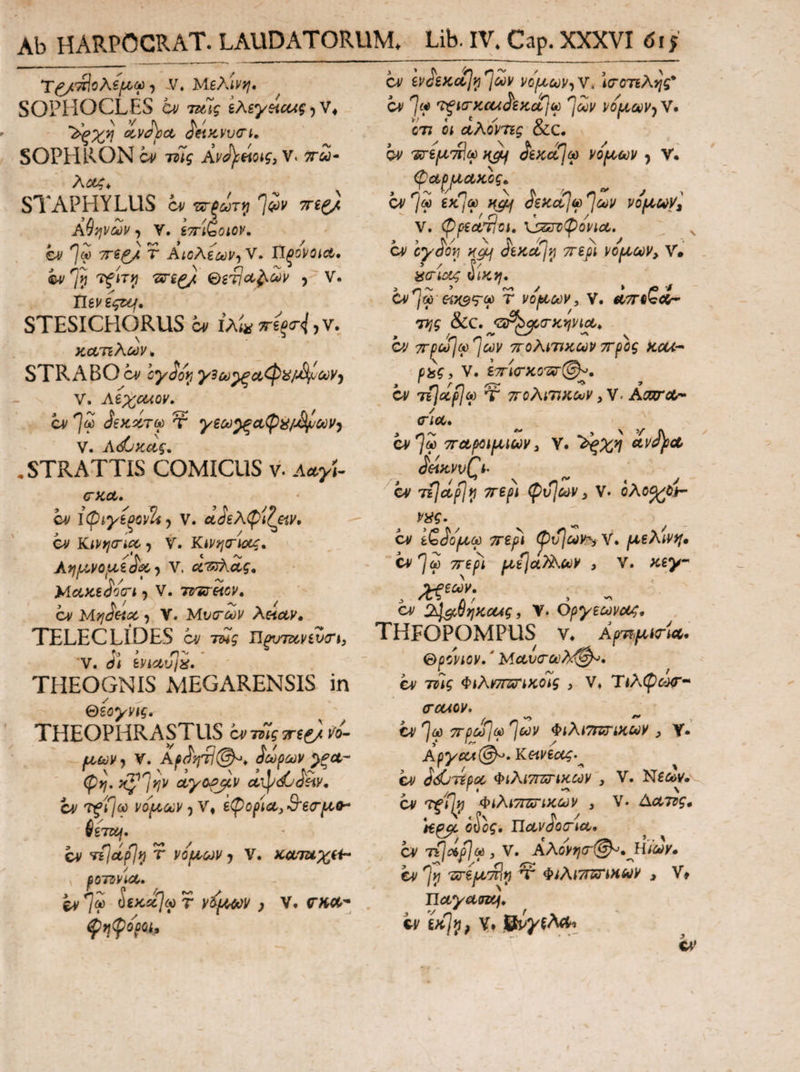 Ab HARPOCRAT. LAUDATORUM. Lib. IV. Cap. XXXVI 615
Τριπτολέμῳ, V. Μελίνη.
SOPHOCLES ἐν ταῖς ἐλεγείαις, V.
ἀρχὴ ἄνδρα δείκνυσι.
SOPHRON ἐν τοῖς Ἀνδρείοις, V. πῶ-
λας.
STAPHYLUS ἐν πρώτῃ τῶν περὶ
Ἀθηνῶν, V. ἐπίβοιον.
ἐν τῷ περὶ τ Αἰολέων, V. Προνοία.
ἐν τῇ τρίτῃ περὶ Θετταλῶν, V.
Πενέσται.
STESICHORUS ἐν Ἰλίου πέρσει, V.
κατελῶν.
STRABO ἐν ὀγδόῃ γεωγραφουμένων,
V. Λέχαιον.
ἐν τῷ δεκάτῳ τ γεωγραφουμένων,
V. Λεύκας.
STRATTIS COMICUS v. Λαγί-
σκα.
ἐν Ἰφιγέροντι, V. ἀδελφίζειν.
ἐν Κινησία, V. Κινησίας.
Λημνομέδα, V. ἀπολάς.
Μακεδόσι, V. πυπεῖον.
ἐν Μηδεία, V. Μυσῶν λείαν.
TELECLIDES ἐν τοῖς Πρυτανεῦσι,
V. δι ἐνιαυτοῦ.
THEOGNIS MEGARENSIS in
Θέογνις.
THEOPHRASTUS ἐν τοῖς περὶ νό-
μων, V. Ἀρδηττος. δώρων γρα-
φή. κτ τὴν ἀγορὰν ἀψευδεῖν.
ἐν τρίτῳ νόμων, V. ἐφορία, θεσμο-
θέται.
ἐν τετάρτῃ τ νόμων, V. καταχει-
ροτονία.
ἐν τῷ δεκάτῳ τ νόμων, V. σκα-
φηφόροι,
ἐν ἑνδεκάτῃ τῶν νόμων, V. ἰσοτελής
ἐν τῷ τρισκαιδεκάτῳ τῶν νόμων, V.
ὅτι οἱ ἁλόντες &c.
ἐν πέμπτῳ καὶ δεκάτῳ νόμων, V.
φαρμακός.
ἐν τῷ ἕκτῳ καὶ δεκάτῳ τῶν νόμων,
V. φρεάττοι. ὑποφόνια.
ἐν ὀγδόῃ καὶ δεκάτῃ περὶ νόμων, V.
οὐσίας δίκη.
ἐν τῷ εἰκοστῷ τ νόμων, V. ἀποβά-
της &c. παρασκήνια.
ἐν πρώτῳ τῶν πολιτικῶν πρὸς και-
ροὺς, V. ἐπίσκοπος.
ἐν τετάρτῳ τ πολιτικῶν, V. Ἀσπα-
σία.
ἐν τῷ παροιμιῶν, V. ἀρχὴ ἄνδρα
δείκνυσι.
ἐν τετάρτῃ περὶ φυτῶν, V. ὁλοσχοί-
νους.
ἐν ἑβδόμῳ περὶ φυτῶν, V. μελίνη.
ἐν τῷ περὶ μετάλλων, V. κεγ-
χρεών.
ἐν Διαθήκαις, V. Ὀργεῶνας.
THEOPOMPUS v. Ἀρτεμισία.
Θρόνιον. Μαύσωλος.
ἐν τοῖς Φιλιππικοῖς, V. Τιλφώσ-
σαιον.
ἐν τῷ πρώτῳ τῶν Φιλιππικῶν, V.
Ἀργαιος. Κεινέας.
ἐν δευτέρα Φιλιππικῶν, V. Νέων.
ἐν τρίτῃ Φιλιππικῶν, V. Δατος.
ἱερὰ ὁδός. Πανδοσία.
ἐν τετάρτῳ, V. Ἀλόνησος. Ηϊών.
ἐν τῇ πέμπτῃ τ Φιλιππικῶν, V.
Παγασαί.
ἐν ἕκτῃ, V.
ἐν